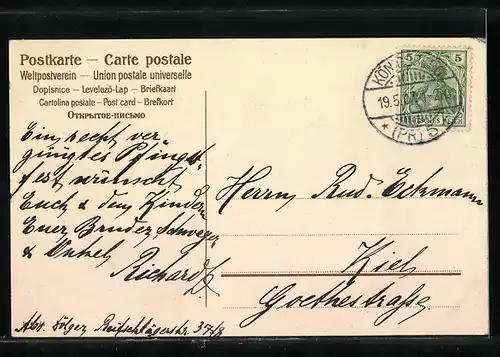 Postkarte — Carte postale
Weltpostverein — Union postale universelle
Dopisnice – Levelező-Lap – Briefkaart
Cartolina postale – Post card – Brefkort
Открытое-письмо
5 5
19.5.07
* (PR) 5
Ein recht ver-
gnügtes Pfingst-
fest wünscht
Euch & den Kindern
Euer Bruder, Schwager
& Onkel
Richard
Herrn Rud. Eckmann
Kiel
Goethestraße
Abs. Reifschlägerstr. 37/8